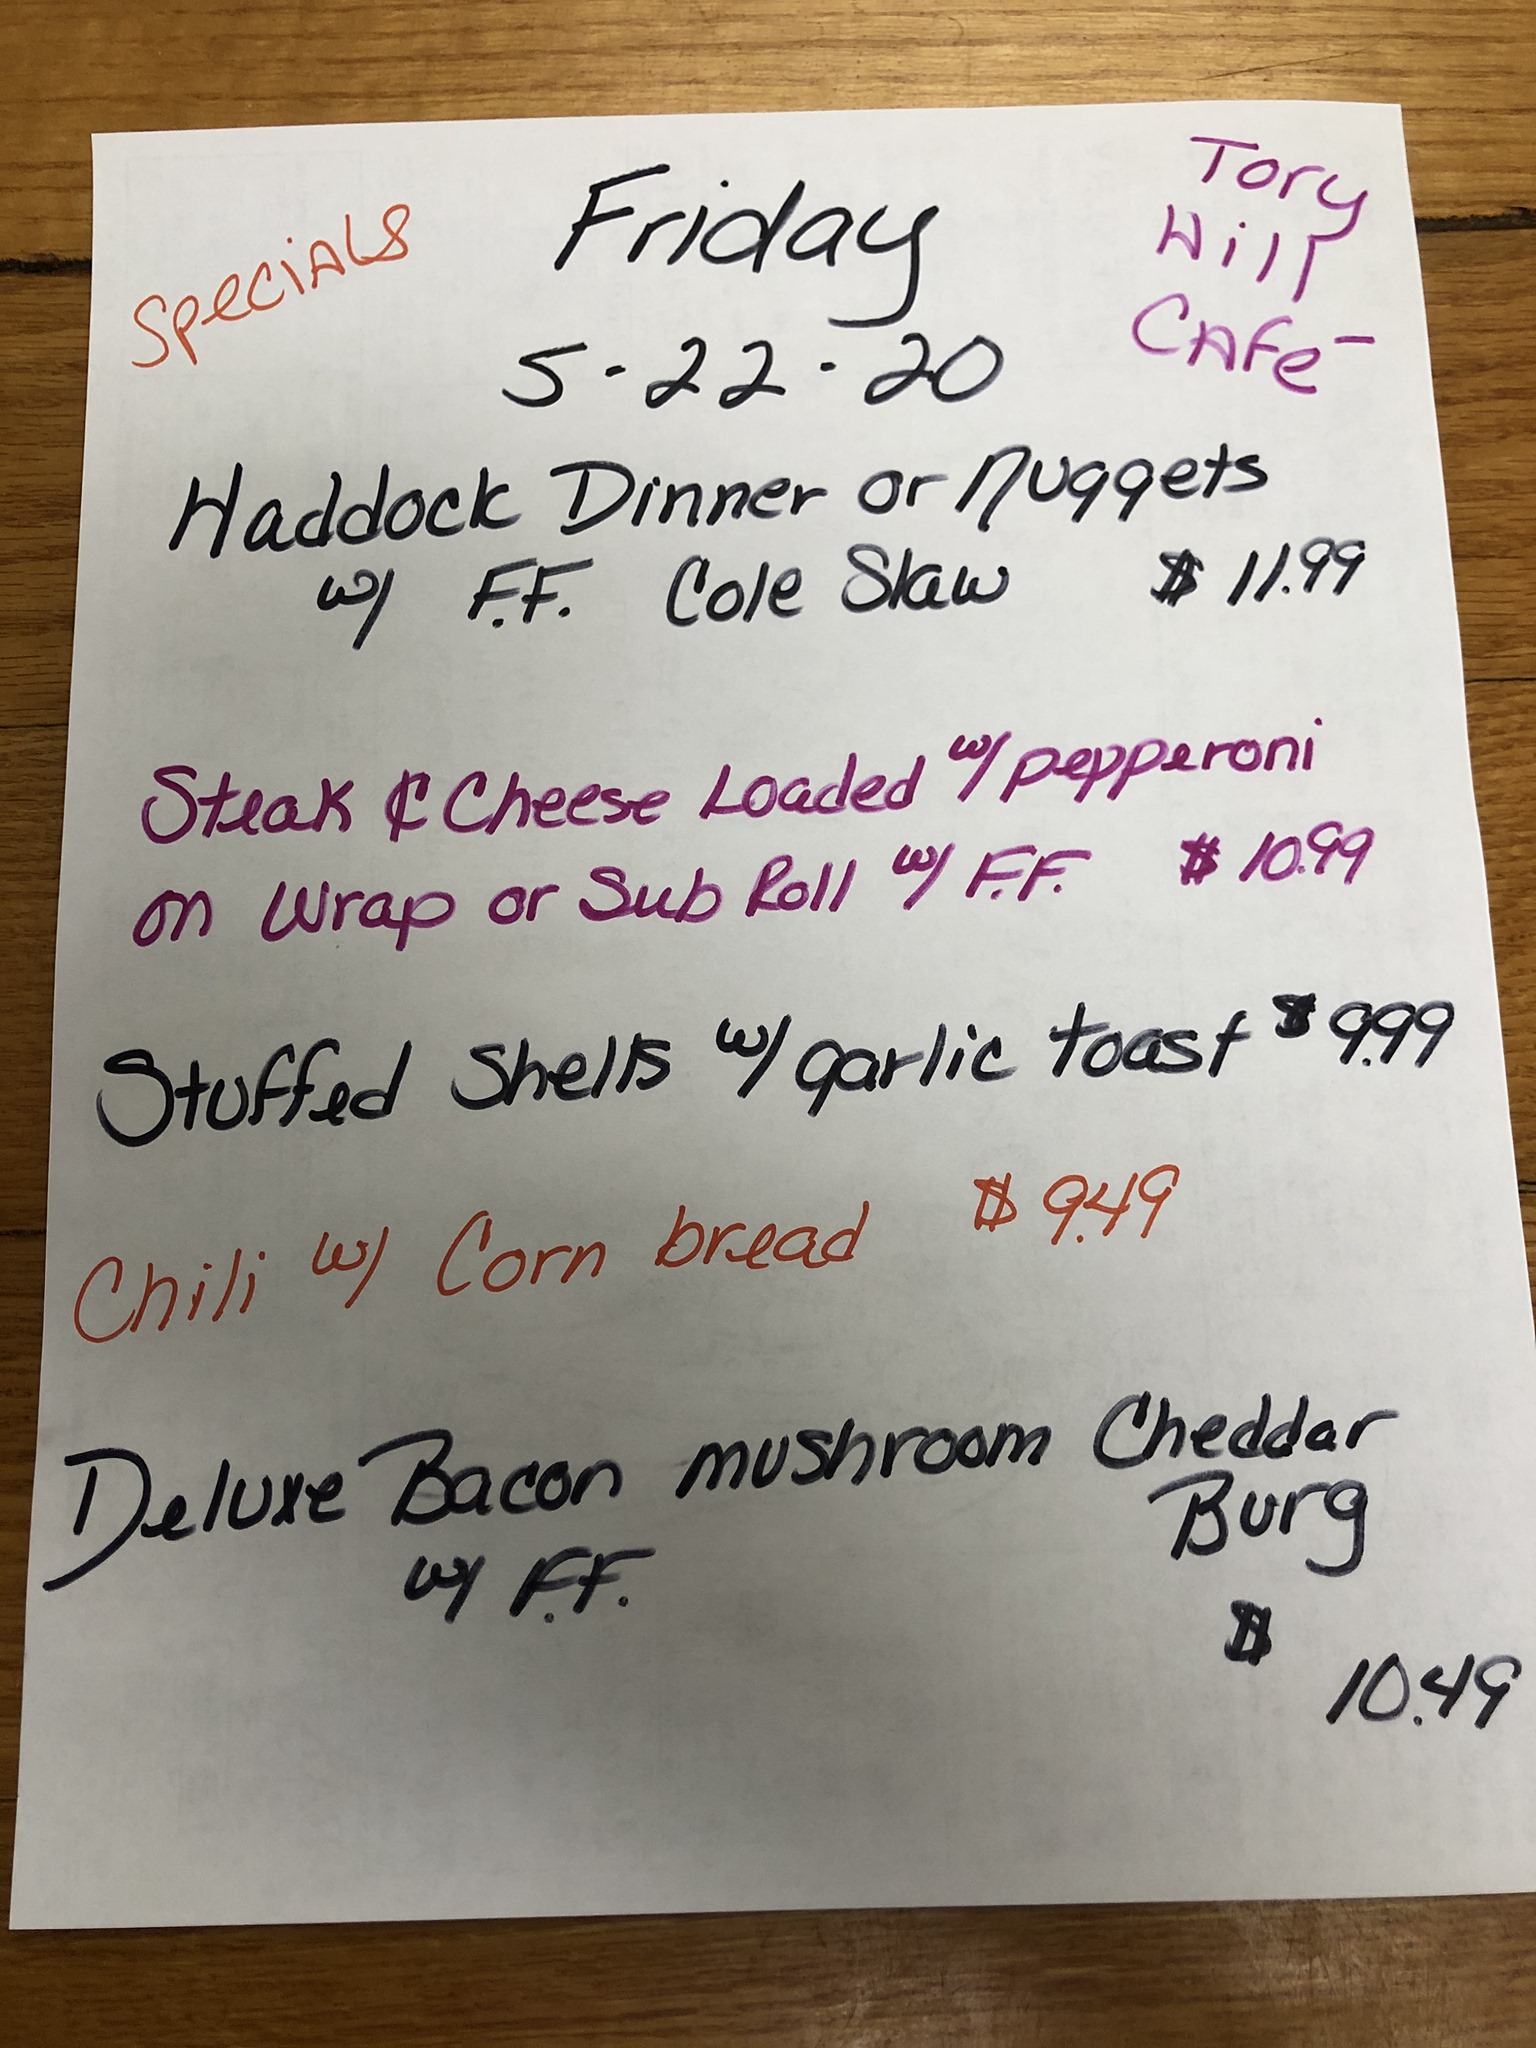 Specials
Friday
5-22-20
Tory
Hill
Cafe-
Haddock Dinner or Nuggets
w/ F.F. Cole Slaw $11.99
Steak & Cheese Loaded w/ pepperoni
on Wrap or Sub Roll w/ F.F. $10.99
Stuffed Shells w/ garlic toast $9.99
Chili w/ Corn bread $9.49
Deluxe Bacon mushroom Cheddar
Burg
w/ F.F.
$
10.49